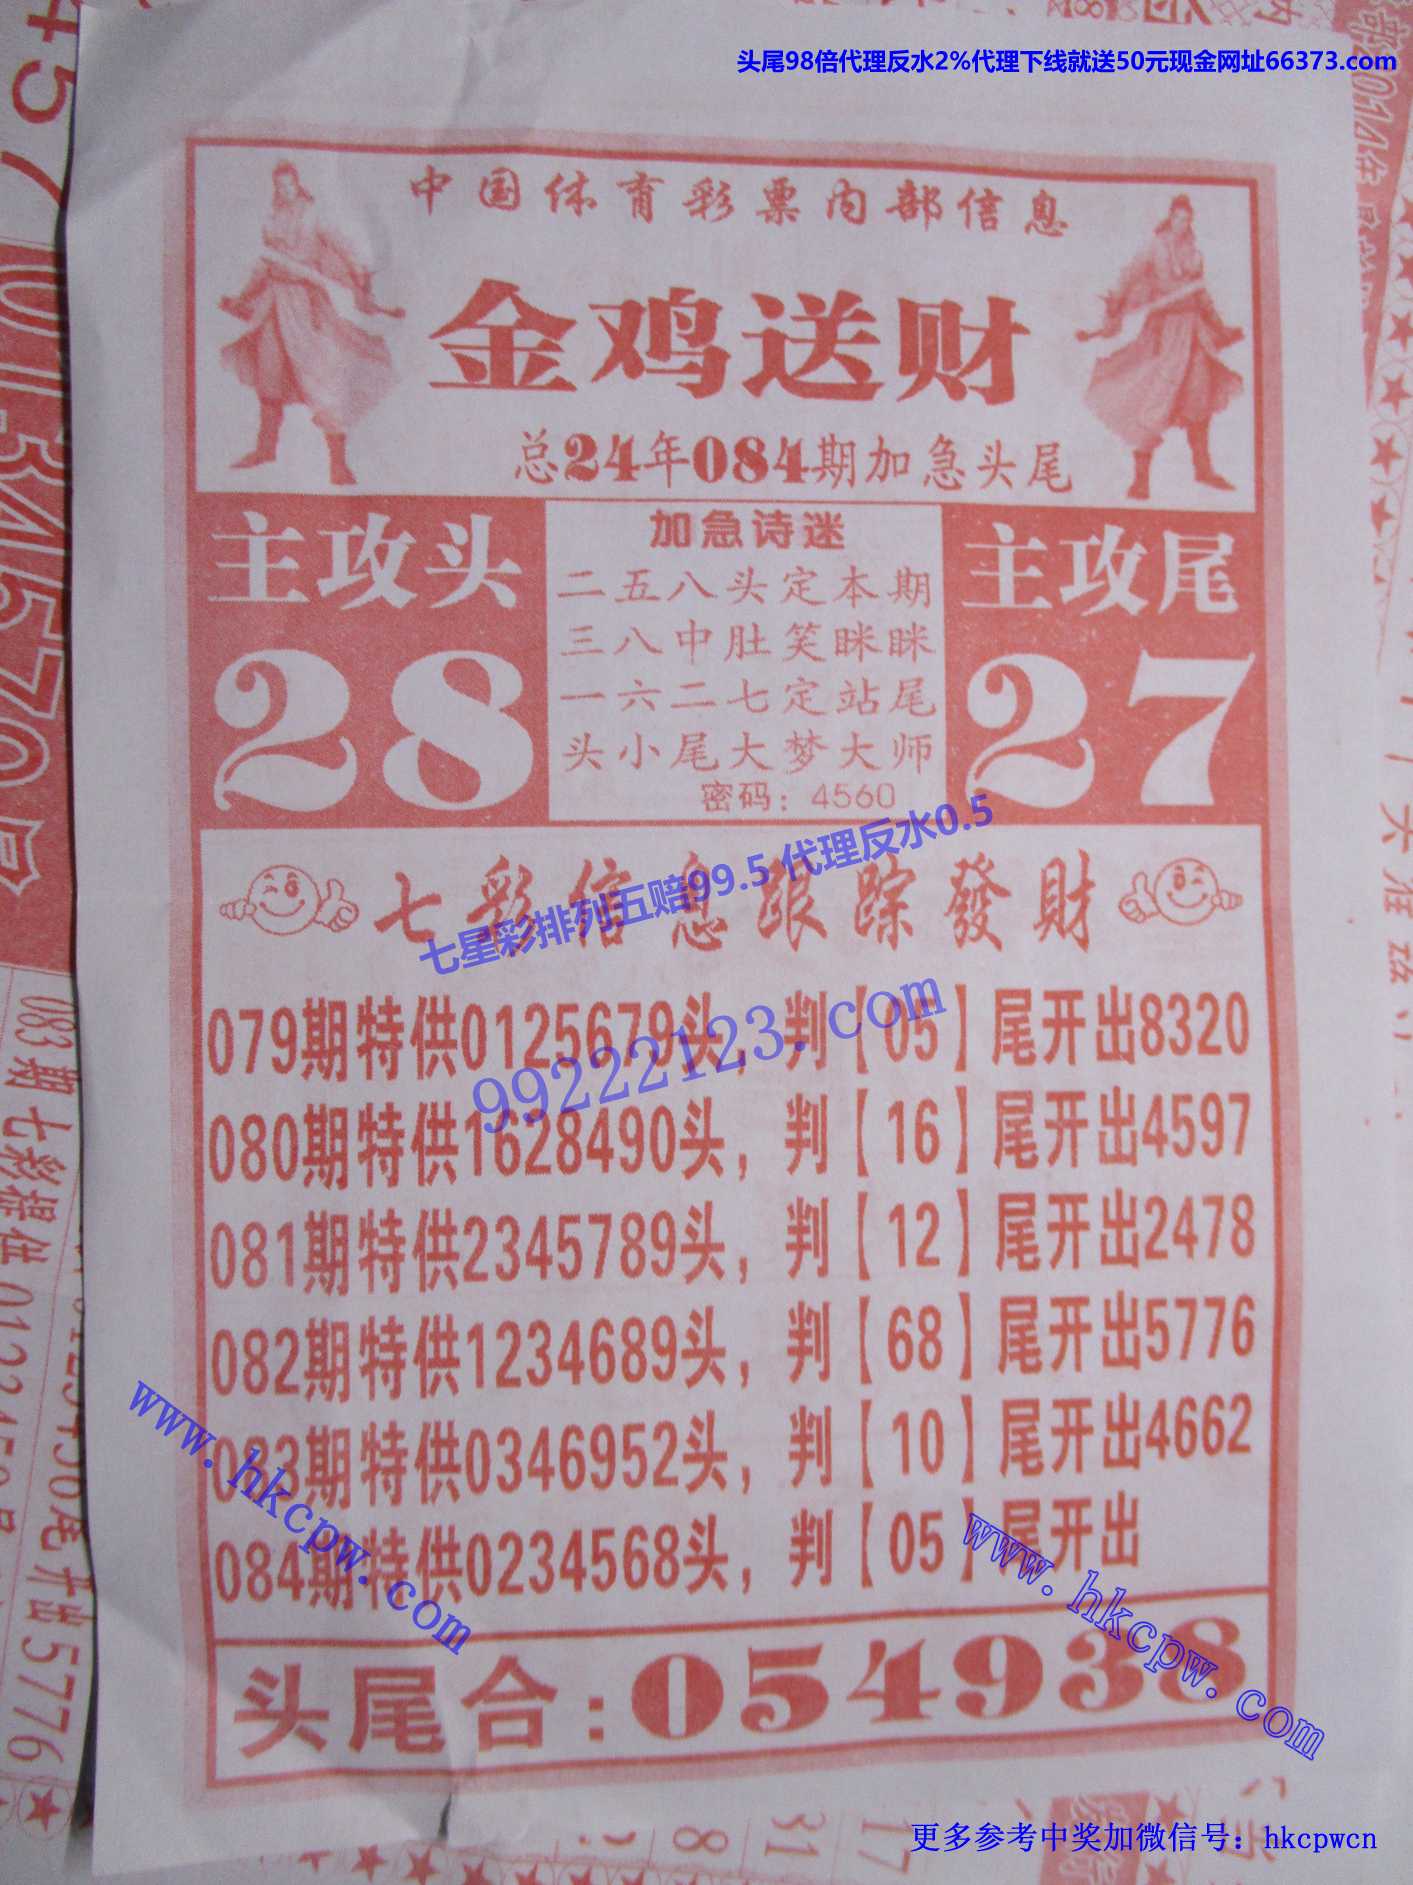 头尾98倍代理反水2%代理下线就送50元现金网址66373.com
中国体育彩票内部信息
金鸡送财
总24年084期加急头尾
主攻头
28
加急诗迷
二五八头定本期
三八中肚笑眯眯
一六二七定站尾
头小尾大梦大师
密码：4560
主攻尾
27
七彩信息跟踪發財
七星彩排列五赔99.5 代理反水0.5
99222123.com
079期特供0125679头，判【05】尾开出8320
080期特供1628490头，判【16】尾开出4597
081期特供2345789头，判【12】尾开出2478
082期特供1234689头，判【68】尾开出5776
083期特供0346952头，判【10】尾开出4662
084期特供0234568头，判【05】尾开出
www.hkcpw.com
www.hkcpw.com
头尾合：054938
更多参考中奖加微信号：hkcpwcn